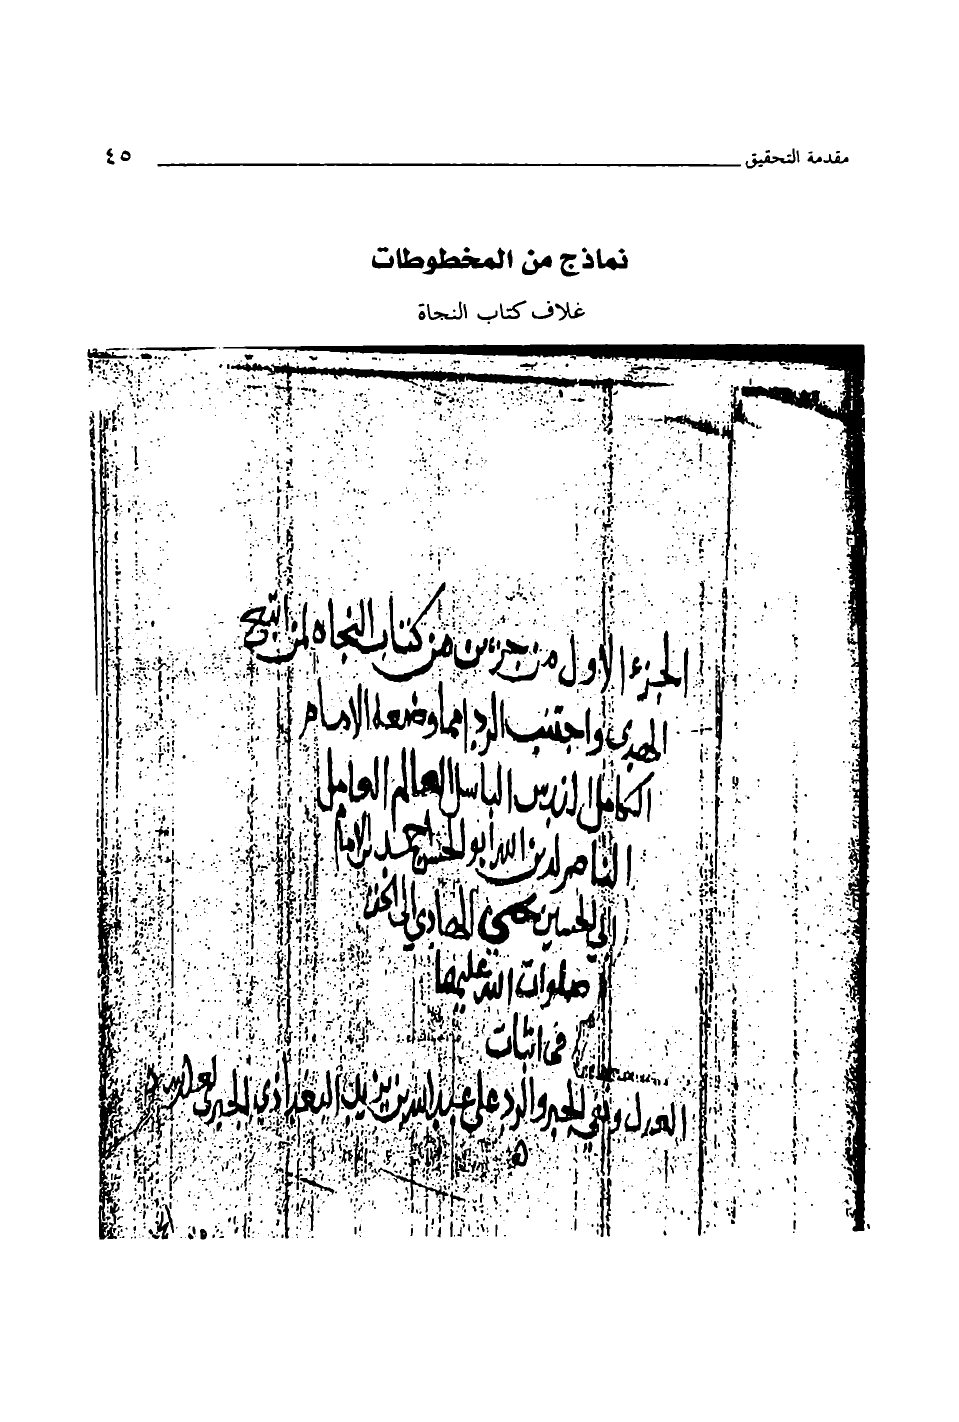 مقدمة التحقيق ٤٥
نماذج من المخطوطات
غلاف كتاب النجاة
الجزء الاول من جزءين من كتاب النجاه لمن اتبع
الهدى واجتنب الردى مما وضعه الامام
الكامل الباسل العالم العامل
الناصر لدين الله ابو الحسن احمد بن الامام
الحسين يحيى الهادي الى الحق
صلوات الله عليهما
في اثبات
العدل ونفي الجبر والرد على عبد الله بن يزيد البغدادي الجبري لعنه الله